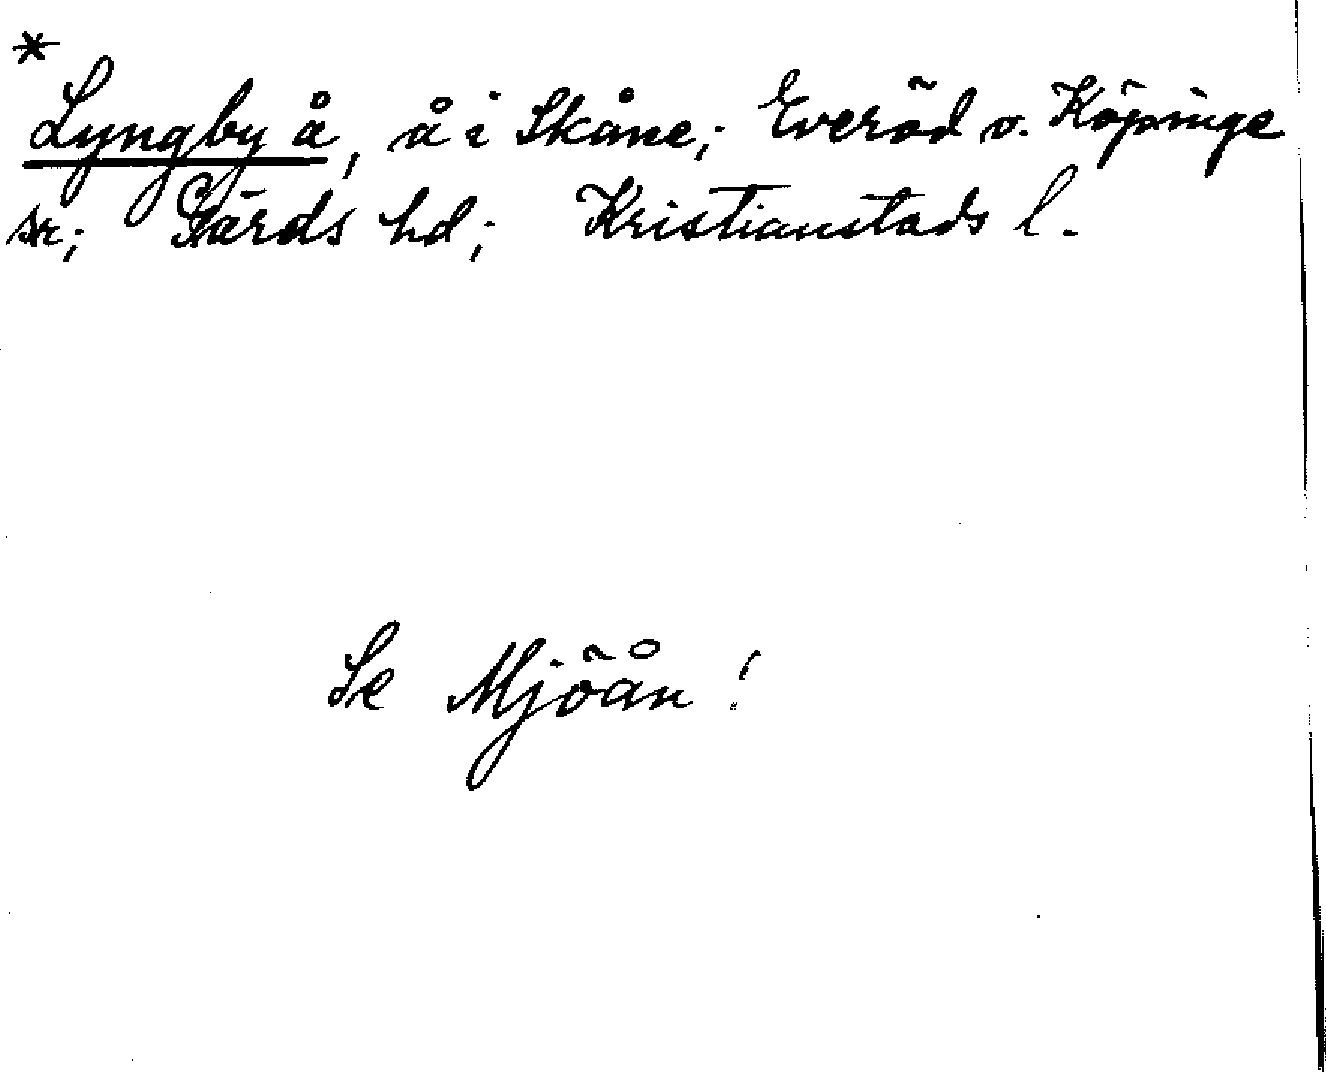 *
Lyngby å, å i Skåne; Everöd o. Köpinge
sr; Gärds hd; Kristianstads l.
Se Mjöån!